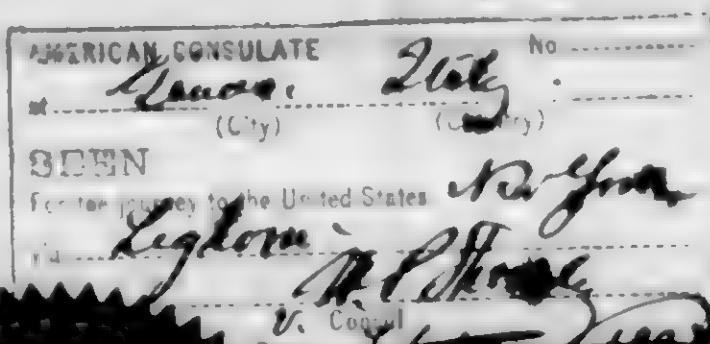 AMERICAN CONSULATE No
at Genoa. Italy.
(City) (Country)
SEEN
For the journey to the United States New York
via Leghorn
V. Consul